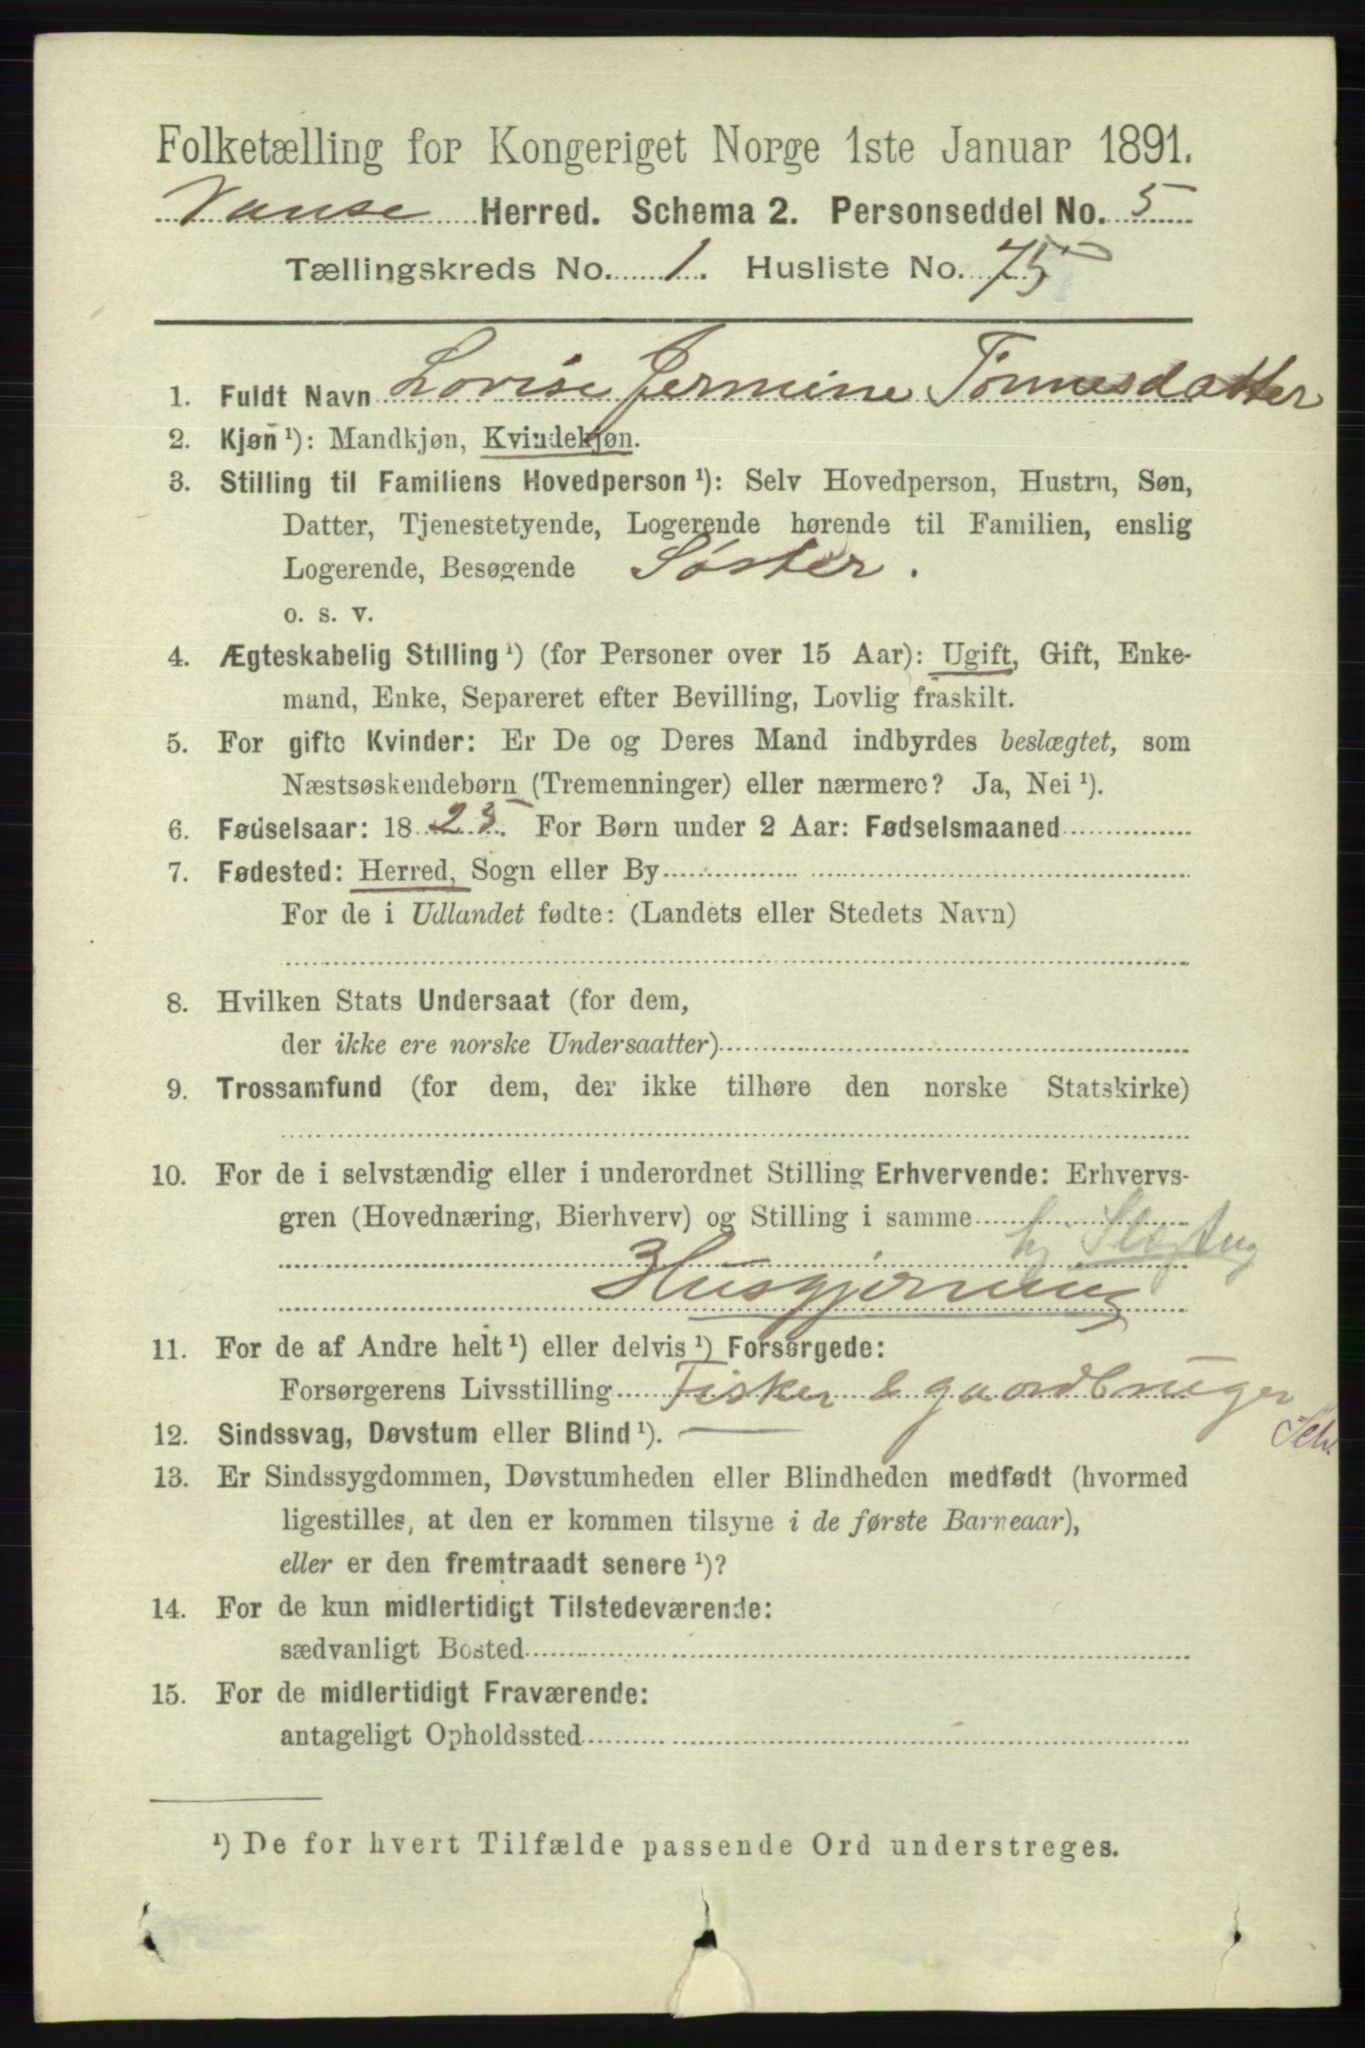 Folketælling for Kongeriget Norge 1ste Januar 1891.
Vanse Herred. Schema 2. Personseddel No. 5
Tællingskreds No. 1. Husliste No. 75
1. Fuldt Navn Lovise Jermine Tönnesdatter
2. Kjøn ¹): Mandkjøn, Kvindekjøn.
3. Stilling til Familiens Hovedperson ¹): Selv Hovedperson, Hustru, Søn,
Datter, Tjenestetyende, Logerende hørende til Familien, enslig
Logerende, Besøgende Søster.
o. s. v.
4. Ægteskabelig Stilling ¹) (for Personer over 15 Aar): Ugift, Gift, Enke-
mand, Enke, Separeret efter Bevilling, Lovlig fraskilt.
5. For gifte Kvinder: Er De og Deres Mand indbyrdes beslægtet, som
Næstsøskendebørn (Tremenninger) eller nærmere? Ja, Nei ¹).
6. Fødselsaar: 1825. For Børn under 2 Aar: Fødselsmaaned
7. Fødested: Herred, Sogn eller By
For de i Udlandet fødte: (Landets eller Stedets Navn)
8. Hvilken Stats Undersaat (for dem,
der ikke ere norske Undersaatter)
9. Trossamfund (for dem, der ikke tilhøre den norske Statskirke)
10. For de i selvstændig eller i underordnet Stilling Erhvervende: Erhvervs-
gren (Hovednæring, Bierhverv) og Stilling i samme
hj Slægtng
Husgjerning
11. For de af Andre helt ¹) eller delvis ¹) Forsørgede:
Forsørgerens Livsstilling Fisker & gaardbruger
Selv.
12. Sindssvag, Døvstum eller Blind ¹).
13. Er Sindssygdommen, Døvstumheden eller Blindheden medfødt (hvormed
ligestilles, at den er kommen tilsyne i de første Barneaar),
eller er den fremtraadt senere ¹)?
14. For de kun midlertidigt Tilstedeværende:
sædvanligt Bosted
15. For de midlertidigt Fraværende:
antageligt Opholdssted
¹) De for hvert Tilfælde passende Ord understreges.